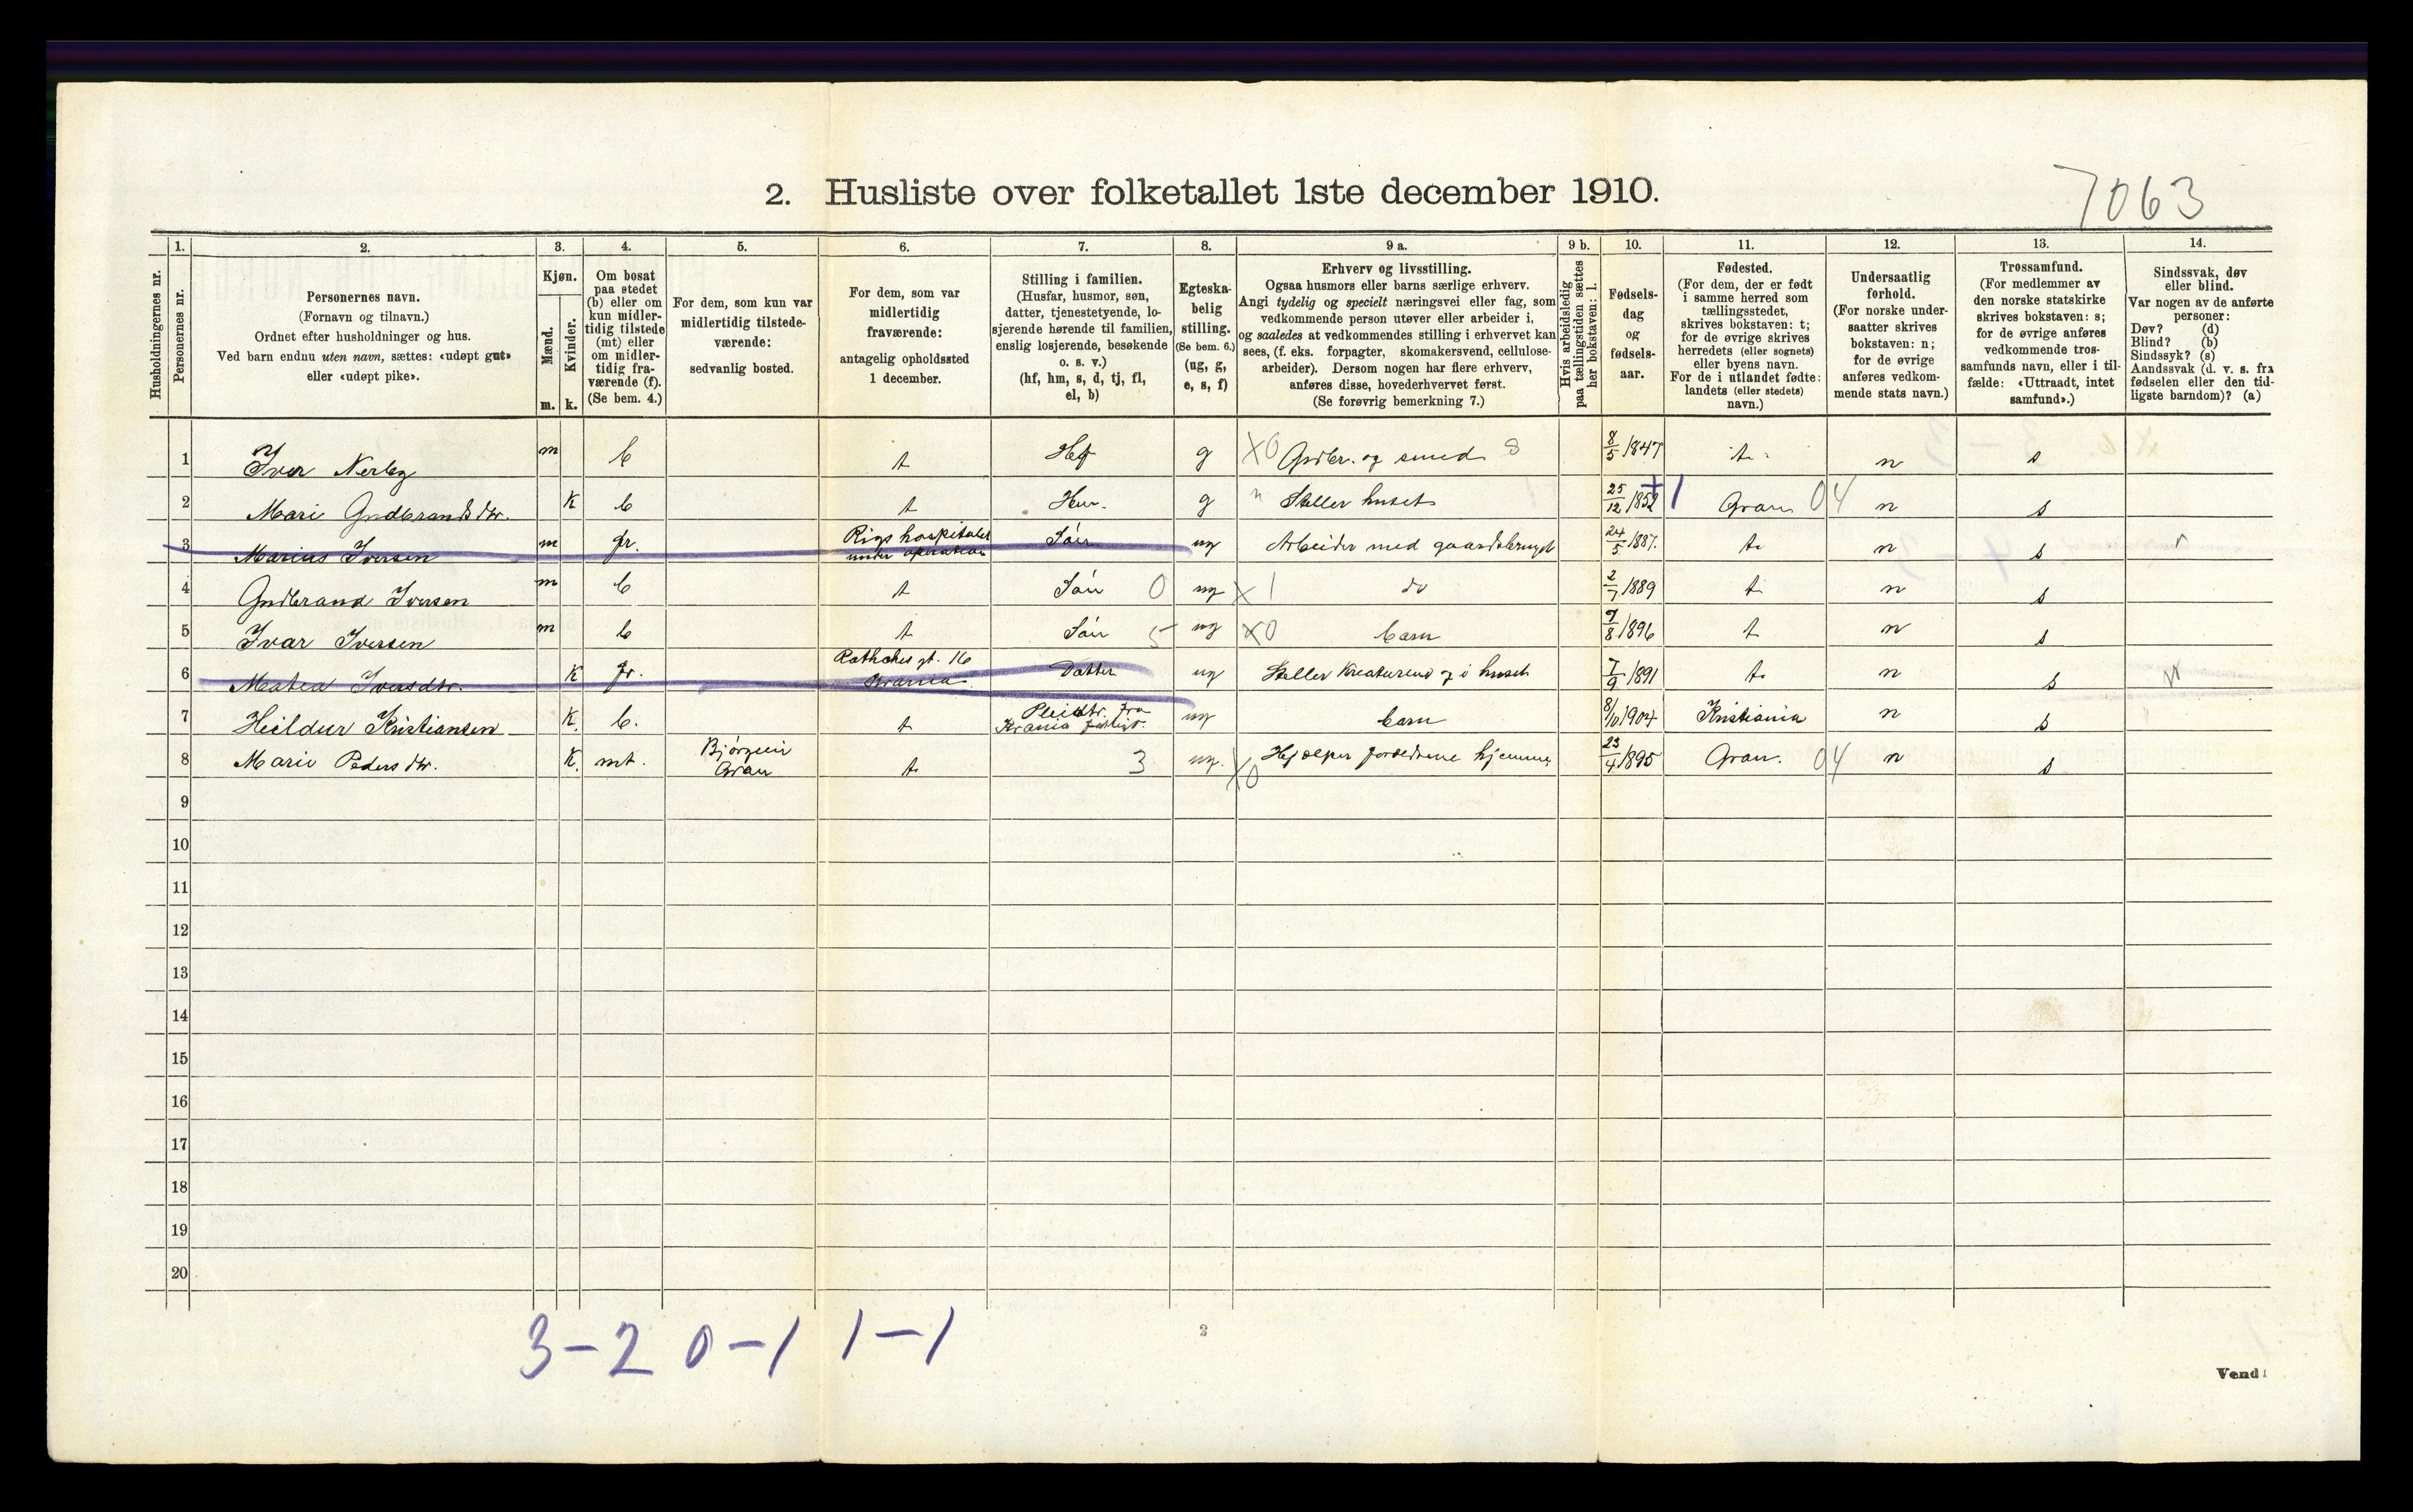 7063
2. Husliste over folketallet 1ste december 1910.
Husholdningernes nr.
1.
Personernes nr.
2.
Personernes navn.
(Fornavn og tilnavn.)
Ordnet efter husholdninger og hus.
Ved barn endnu uten navn, sættes: «udøpt gut»
eller «udøpt pike».
3.
Kjøn.
Mænd.
Kvinder.
m. k.
4.
Om bosat
paa stedet
(b) eller om
kun midler-
tidig tilstede
(mt) eller
om midler-
tidig fra-
værende (f).
(Se bem. 4.)
5.
For dem, som kun var
midlertidig tilstede-
værende:
sedvanlig bosted.
6.
For dem, som var
midlertidig
fraværende:
antagelig opholdssted
1 december.
7.
Stilling i familien.
(Husfar, husmor, søn,
datter, tjenestetyende, lo-
sjerende hørende til familien,
enslig losjerende, besøkende
o. s. v.)
(hf, hm, s, d, tj, fl,
el, b)
8.
Egteska-
belig
stilling.
(Se bem. 6.)
(ug, g,
e, s, f)
9 a.
Erhverv og livsstilling.
Ogsaa husmors eller barns særlige erhverv.
Angi tydelig og specielt næringsvei eller fag, som
vedkommende person utøver eller arbeider i,
og saaledes at vedkommendes stilling i erhvervet kan
sees, (f. eks. forpagter, skomakersvend, cellulose-
arbeider). Dersom nogen har flere erhverv,
anføres disse, hovederhvervet først.
(Se forøvrig bemerkning 7.)
9 b.
Hvis arbeidsledig
paa tællingstiden sættes
her bokstaven: l.
10.
Fødsels-
dag
og
fødsels-
aar.
11.
Fødested.
(For dem, der er født
i samme herred som
tællingsstedet,
skrives bokstaven: t;
for de øvrige skrives
herredets (eller sognets)
eller byens navn.
For de i utlandet fødte:
landets (eller stedets)
navn.)
12.
Undersaatlig
forhold.
(For norske under-
saatter skrives
bokstaven: n;
for de øvrige
anføres vedkom-
mende stats navn.)
13.
Trossamfund.
(For medlemmer av
den norske statskirke
skrives bokstaven: s;
for de øvrige anføres
vedkommende tros-
samfunds navn, eller i til-
fælde: «Uttraadt, intet
samfund».)
14.
Sindssvak, døv
eller blind.
Var nogen av de anførte
personer:
Døv? (d)
Blind? (b)
Sindssyk? (s)
Aandssvak (d. v. s. fra
fødselen eller den tid-
ligste barndom)? (a)
1 Iver Nerby m b t Hf g X0 Gndbr. og smed 8 8/5 1847 t. n s
2 Mari Gudbrandsdtr. K b t Hm. g Steller huset 25/12 1852 Gran 04 n s
3 Marius Iversen m fr. Rigshospitalet under operation Sön ug Arbeider med gaardsbruget 24/5 1887. t. n s
4 Gudbrand Iversen m b t Sön 0 ug X 1 do 2/7 1889 t. n s
5 Ivar Iversen m b t Sön 5 ug X0 barn 9/8 1896 t n s
6 Matea Iversdtr. K fr. gt. 16 Krania Datter ug Steller Kreaturene og i huset 7/9 1891 t. n s
7 Heildur Kristiansen K. b. t Pleidtr. fra Krania ug barn 8/10 1904 Kristiania n s
8 Marie Pedersdtr. K. mt. Gran t 3 ug. X0 Hjælper forældrene hjemme 23/4 1895 Gran. 04 n s
9
10
11
12
13
14
15
16
17
18
19
20
3–2 0–1 1–1
2
Vend!